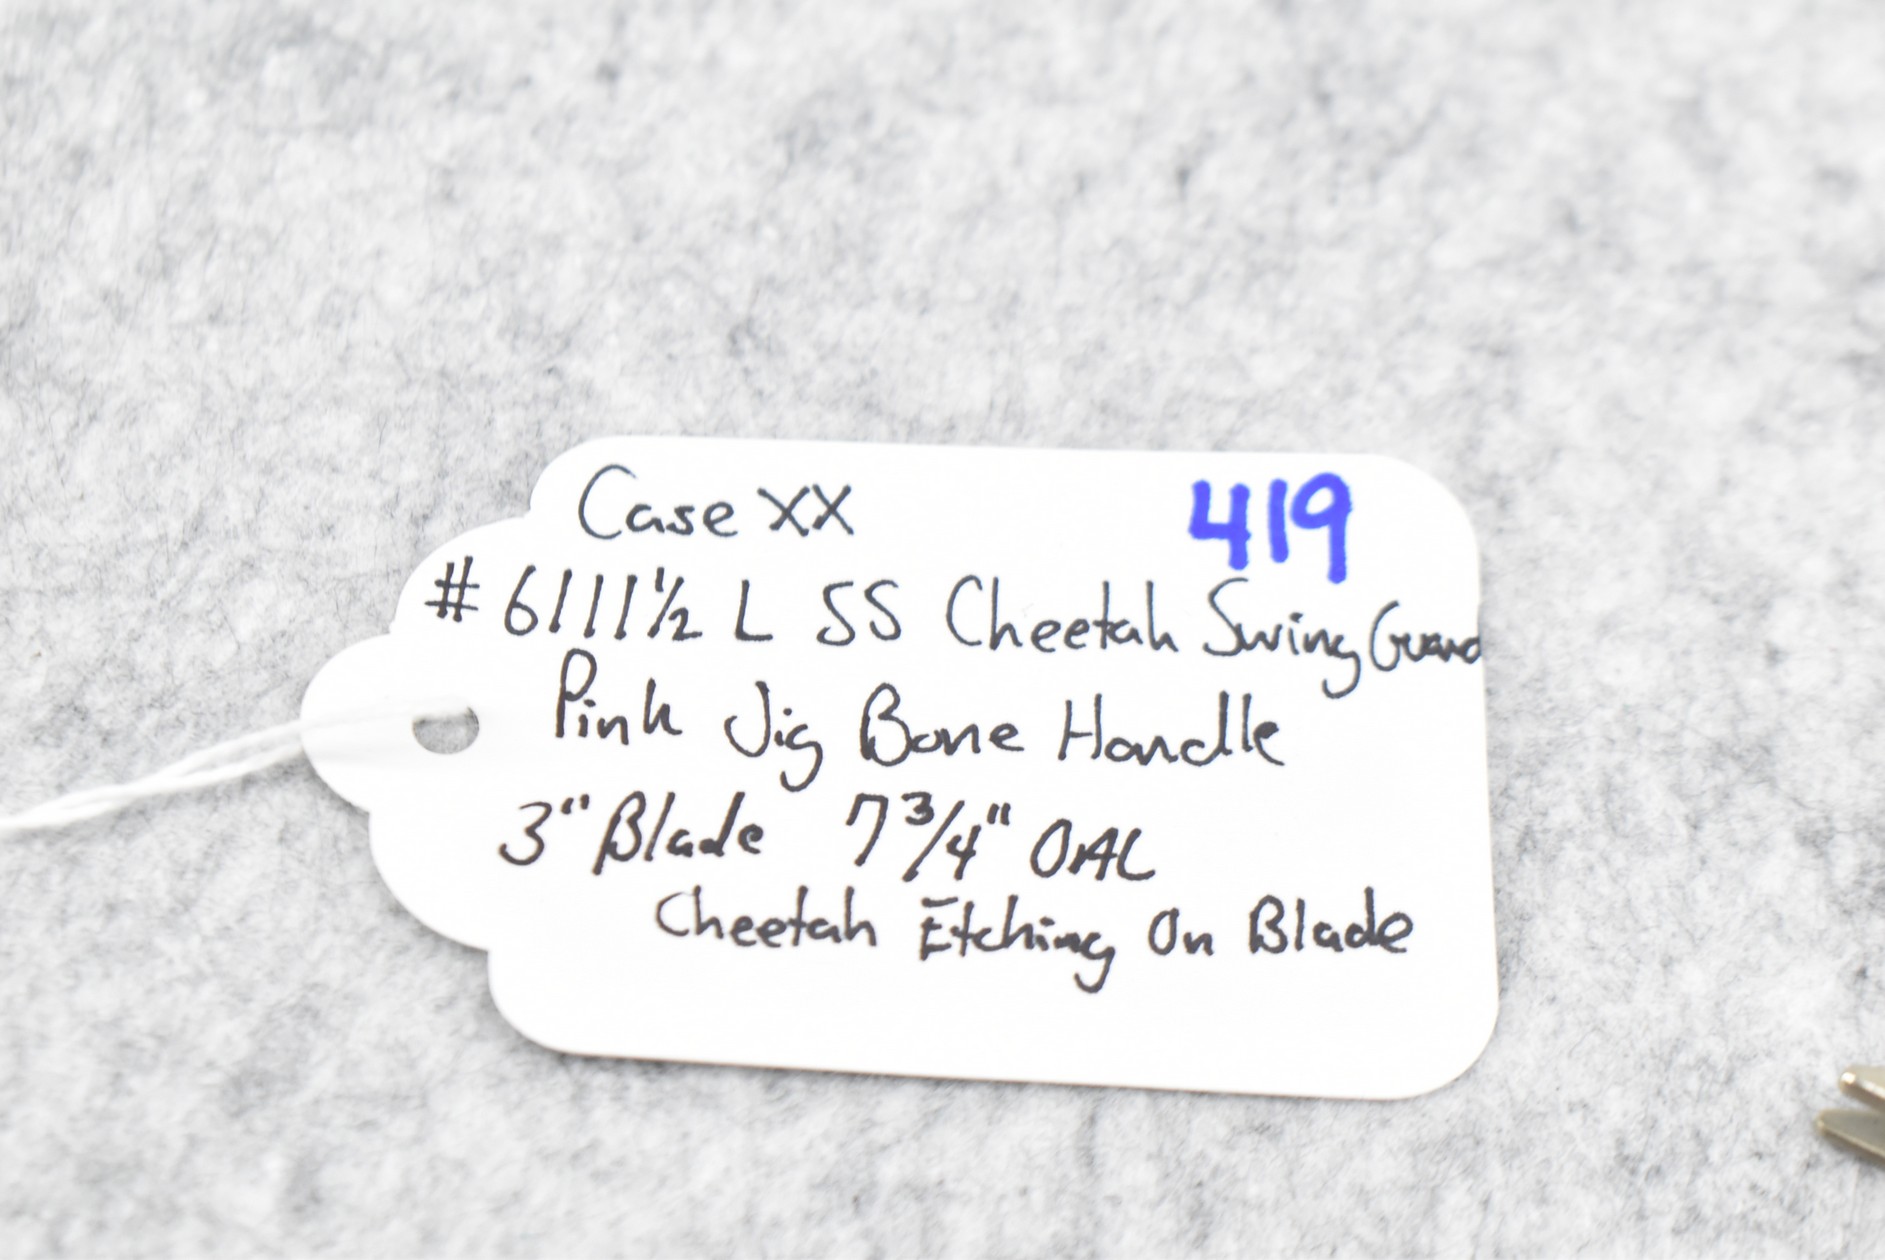 Case XX 419
# 6111½ L SS Cheetah Swing Guard
Pink Jig Bone Handle
3" Blade 7 3/4" OAL
Cheetah Etching On Blade